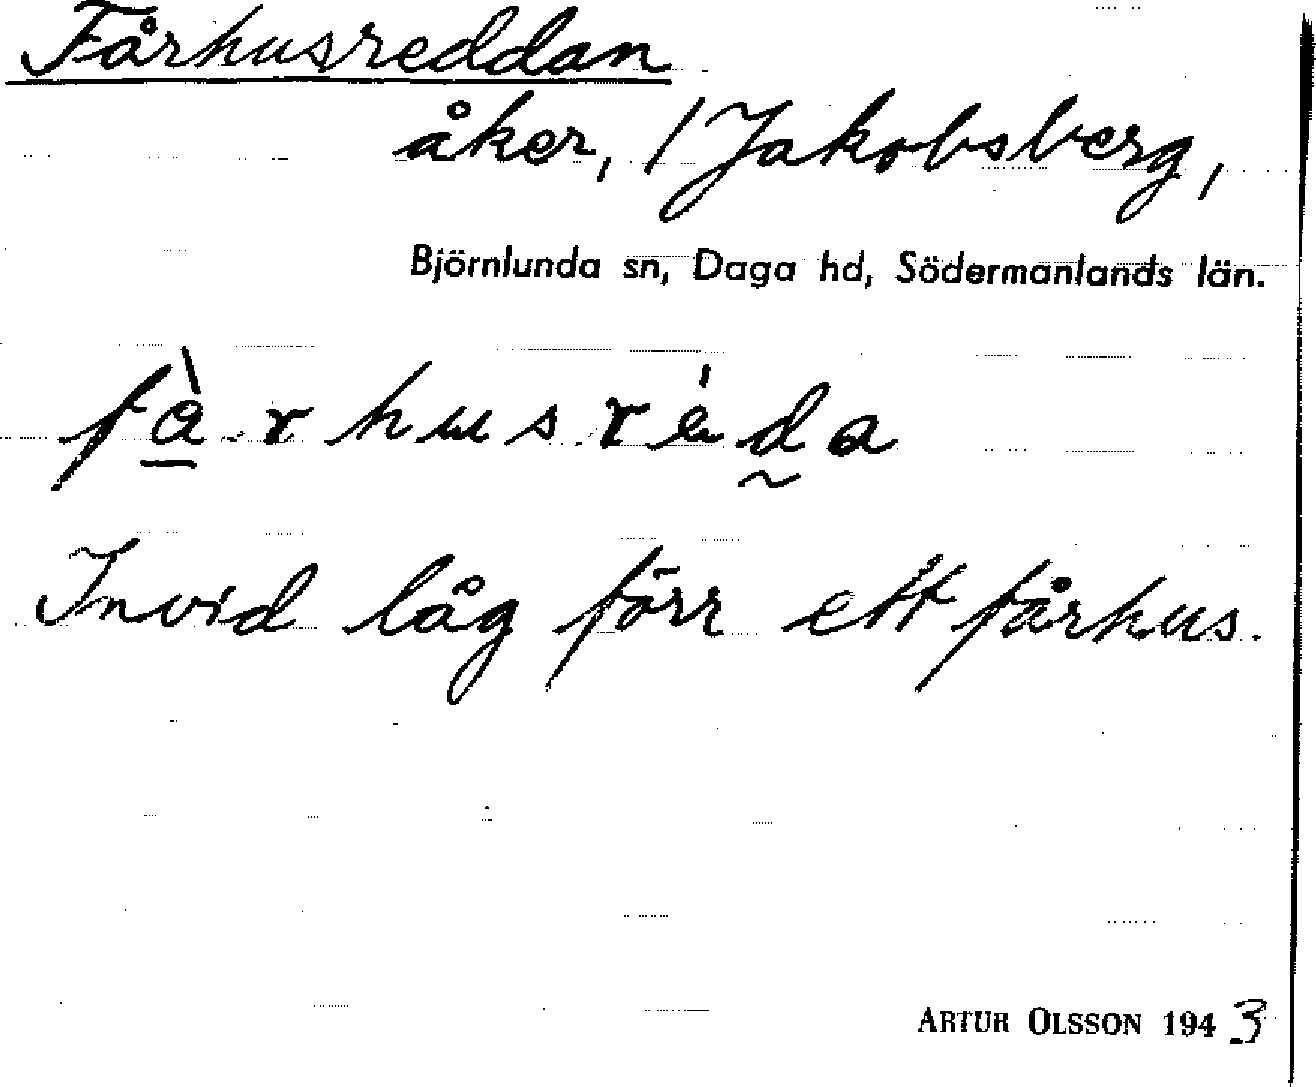 Fårhusreddan
åker, / Jakobsberg,
Björnlunda sn, Daga hd, Södermanlands län.
fà̱rhusréd̰a
Invid låg förr ett fårhus.
ARTUR OLSSON 1943